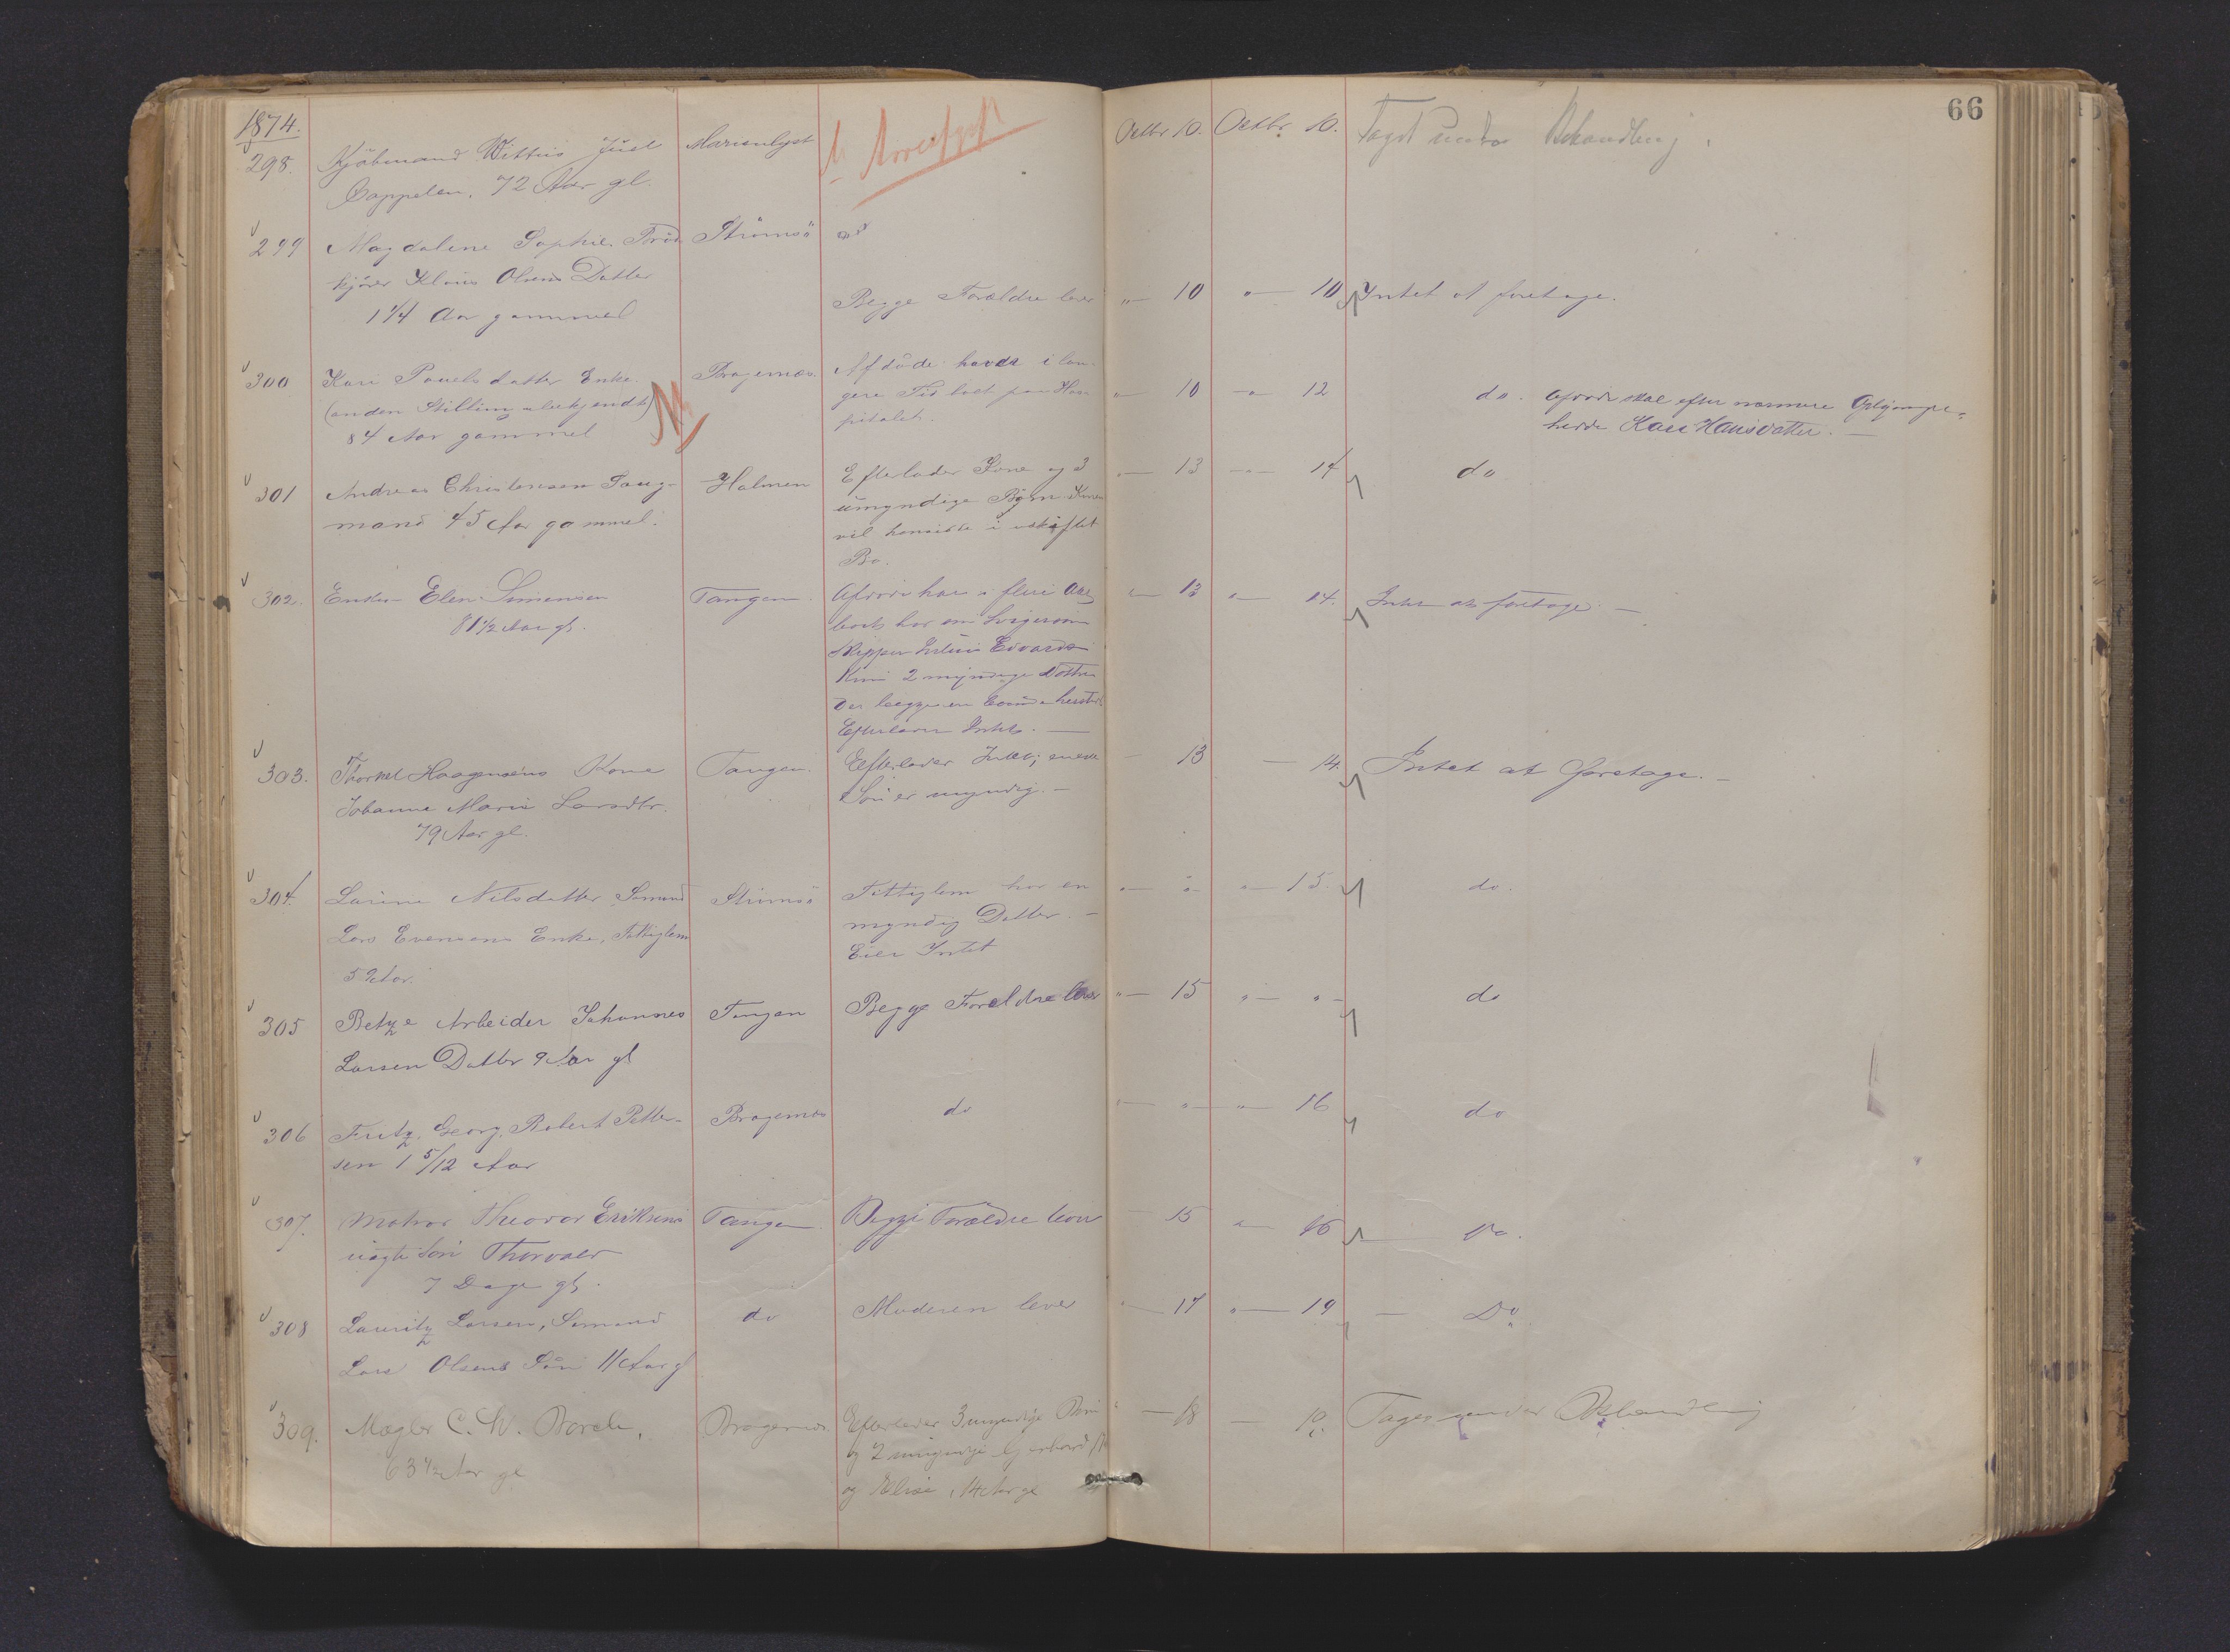 66
1874.
298. Kjöbmand Wittus Juel Marienlyst Octbr 10. Octbr. 10. Taget under Behandling.
Cappelen, 72 Aar gl.
299 Magdalene Sophie Strömsö
kjörer Klaus Olsens Datter
Begge Forældre lever " — 10 " — 10 Intet at foretage.
1 1/4 Aar gammel
300 Kari Pouelsdatter Enke. Bragernæs Afdöde havde i læn-
(anden Stilling ubekjendt) gere Tid boet paa Hos- " — 10 — " — 12 do. Afdöde skal efter nærmere Opgave
84 Aar gammel pitalet. hedde Kari Hansdatter. —
301 Andreas Christensen Saug- Holmen Efterlader Kone og 3 " — 13 — " — 14 do
mand 45 Aar gammel. umyndige Börn. Konen
vil hensidde i uskiftet
Bo.
302. Enken Elen Simensen Tangen. Afdöde har i flere Aar " — 13 " — 14. Intet at foretage. —
81 1/2 Aar gl. boet hos sin Svigersön
Skipper Julius
2 myndige Döttre
Der begge ere
Efterlader Intet. —
303. Thorkel Haagensens Kone Tangen. Efterlader Intet; eneste — 13 — 14. Intet at foretage. —
Johanne Marie Larsdtr. Sön er myndig. —
79 Aar gl.
304. Laurine Nilsdatter Sömand Strömsö Fattiglem har en " — " — " — 15. do.
Lars Evensens Enke, Fattiglem myndig Datter. —
52 Aar. Eier Intet
305 Betze Arbeider Johannes Tangen Begge Forældre lever " — 15 " — " — do
Larsen Datter 9 Aar gl
306 Fritz Georg Robert Petter- Bragernæs do " — " — " — 16 do
sen 1 5/12 Aar
307. Matros Theodor Eriksens Tangen. Begge Forældre lever — 15 " — 16 — Do.
uægte Sön Thorvald
7 Dage gl.
308 Lauritz Larsen, Sömand do Moderen lever " — 17 " — 19 — Do
Lars Olsens Sön 11 Aar gl
309. Mægler C. W. Borch, Bragernæs. Efterlader 3 myndige Börn — 18 — 19. Tages under Behandling
63 1/2 Aar gl og 2 umyndige
og Elise, 14 Aar gl